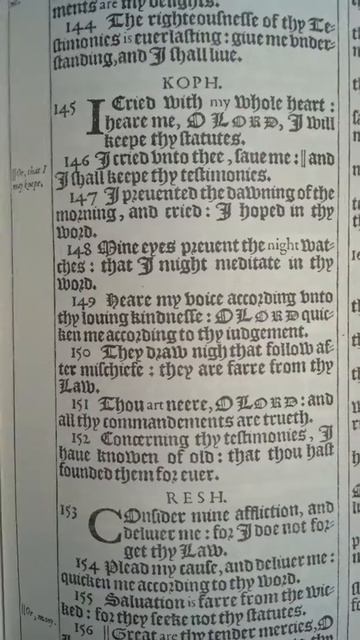 ments are my delights.
144 The righteousnesse of thy Te-
stimonies is euerlasting: giue me vnder-
standing, and I shall liue.
KOPH.
145 I Cried with my whole heart:
heare me, O LORD, I will
keepe thy statutes.
146 I cried vnto thee, saue me: || and
I shall keepe thy testimonies.
||Or, that I
may keepe.
147 I preuented the dawning of the
morning, and cried: I hoped in thy
word.
148 Mine eyes preuent the night wat-
ches: that I might meditate in thy
word.
149 Heare my voice according vnto
thy louing kindnesse: O LORD quic-
ken me according to thy iudgement.
150 They draw nigh that follow af-
ter mischiefe: they are farre from thy
Law.
151 Thou art neere, O LORD: and
all thy commandements are trueth.
152 Concerning thy testimonies, I
haue knowen of old: that thou hast
founded them for euer.
RESH.
153 COnsider mine affliction, and
deliuer me: for I doe not for-
get thy Law.
154 Plead my cause, and deliuer me:
quicken me according to thy word.
155 Saluation is farre from the wic-
ked: for they seeke not thy statutes.
||Or, many.
156 || Great are thy tender mercies, O